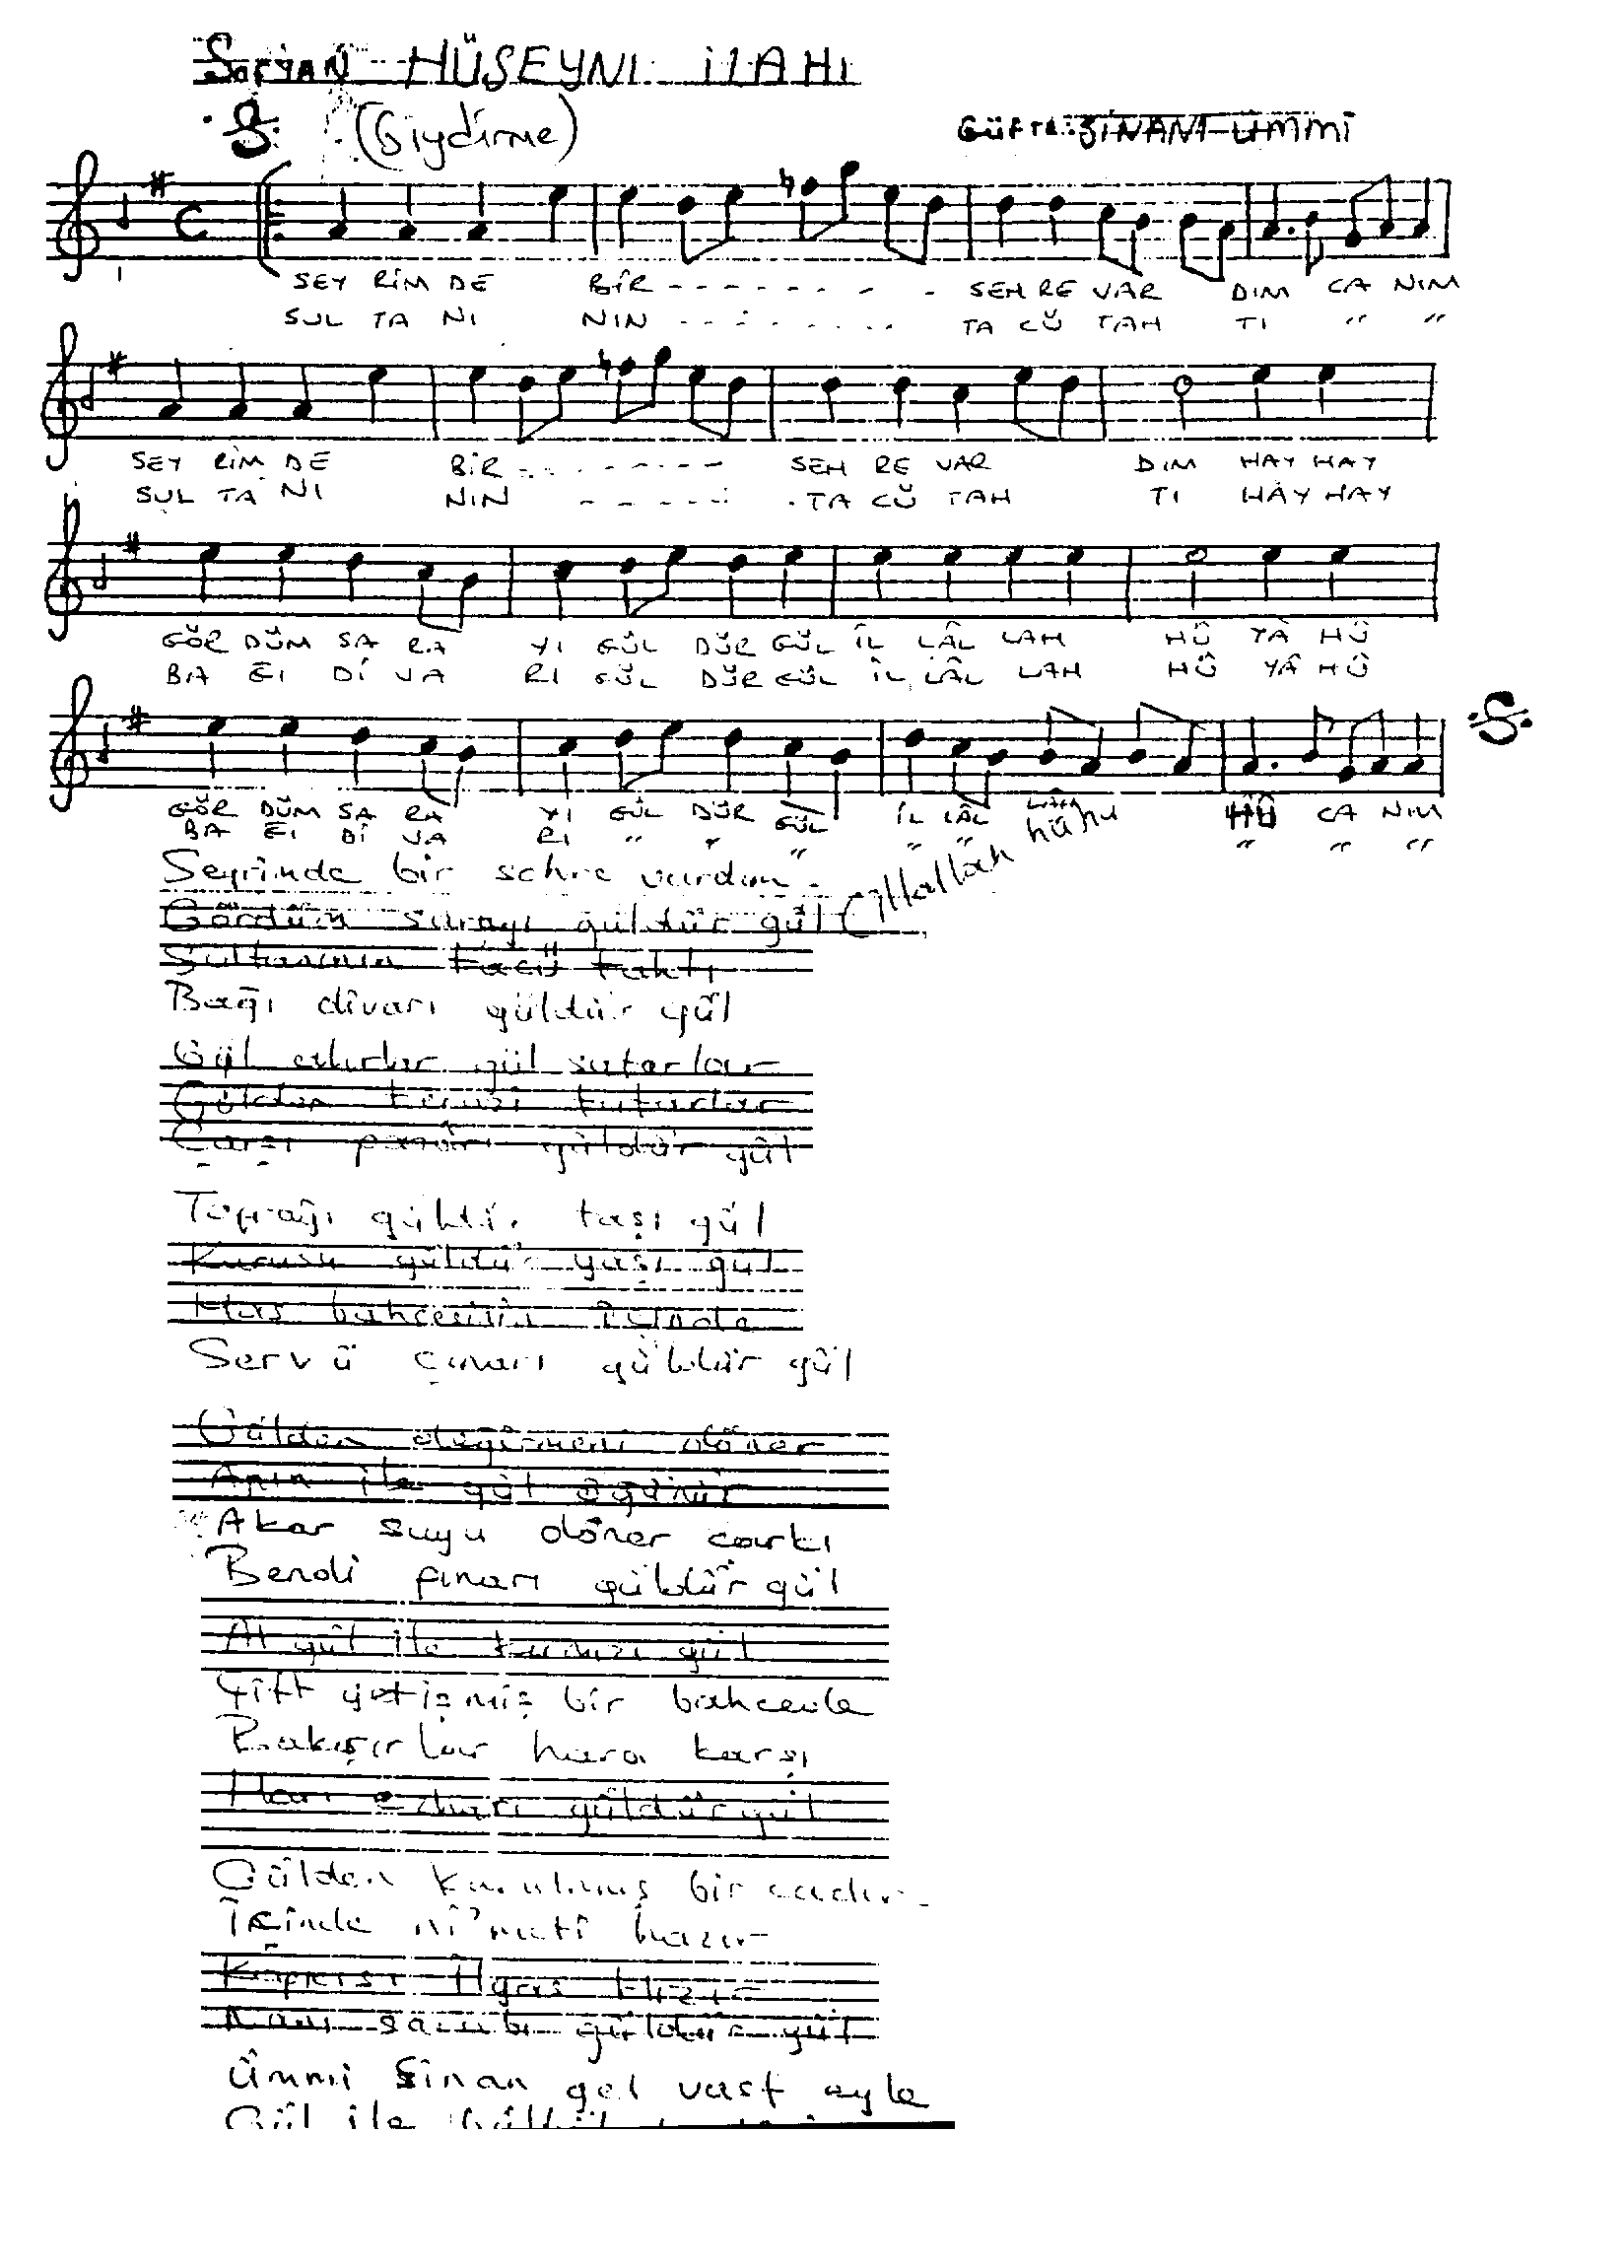 Sofyan HÜSEYNI İLAHI
(Giydirme)
Güfte: SİNANI ÜMMİ
SEY RİM DE BİR - - - - - - - - - SEH RE VAR DIM CA NIM
SUL TA NI NIN - - - - - - - - TA CÜ TAH TI " "
SEY RİM DE BİR - - - - - - - - SEH RE VAR DIM HAY HAY
SUL TA NI NIN - - - - - - TA CÜ TAH TI HAY HAY
GÖR DÜM SA RA YI GÜL DÜR GÜL ÎL LÂL LAH HÛ YÂ HÛ
BA ĞI DÎ VA RI GÜL DÜR GÜL ÎL LÂL LAH HÛ YÂ HÛ
GÖR DÜM SA RA YI GÜL DÜR GÜL ÎL LÂL LAH HÛ CA NIM
BA ĞI DÎ VA RI " " " " " hû hu " " "
Seyrimde bir sehre vardım
Gördüm sarayı güldür gül (illallah
Sultanının tacü tahtı
Bağı dîvarı güldür gül
Gül alırlar gül satarlar
Gülden terazi tutarlar
Çarşı pazarı güldür gül
Toprağı güldür taşı gül
Kurusu güldür yaşı gül
Has bahcesinin içinde
Servü çınarı güldür gül
Gülden değirmeni döner
Anın ile gül öğünür
Akar suyu döner carkı
Bendi pınarı güldür gül
Al gül ile kırmızı gül
Çift yetişmiş bir bahcede
Bakışırlar hara karşı
Harı ezharı güldür gül
Gülden kurulmuş bir cadır
İçinde ni'meti hazır
Kapıcısı İlyas Hızır
güldür gül
Ümmi Sinan gel vasf eyle
Gül ile